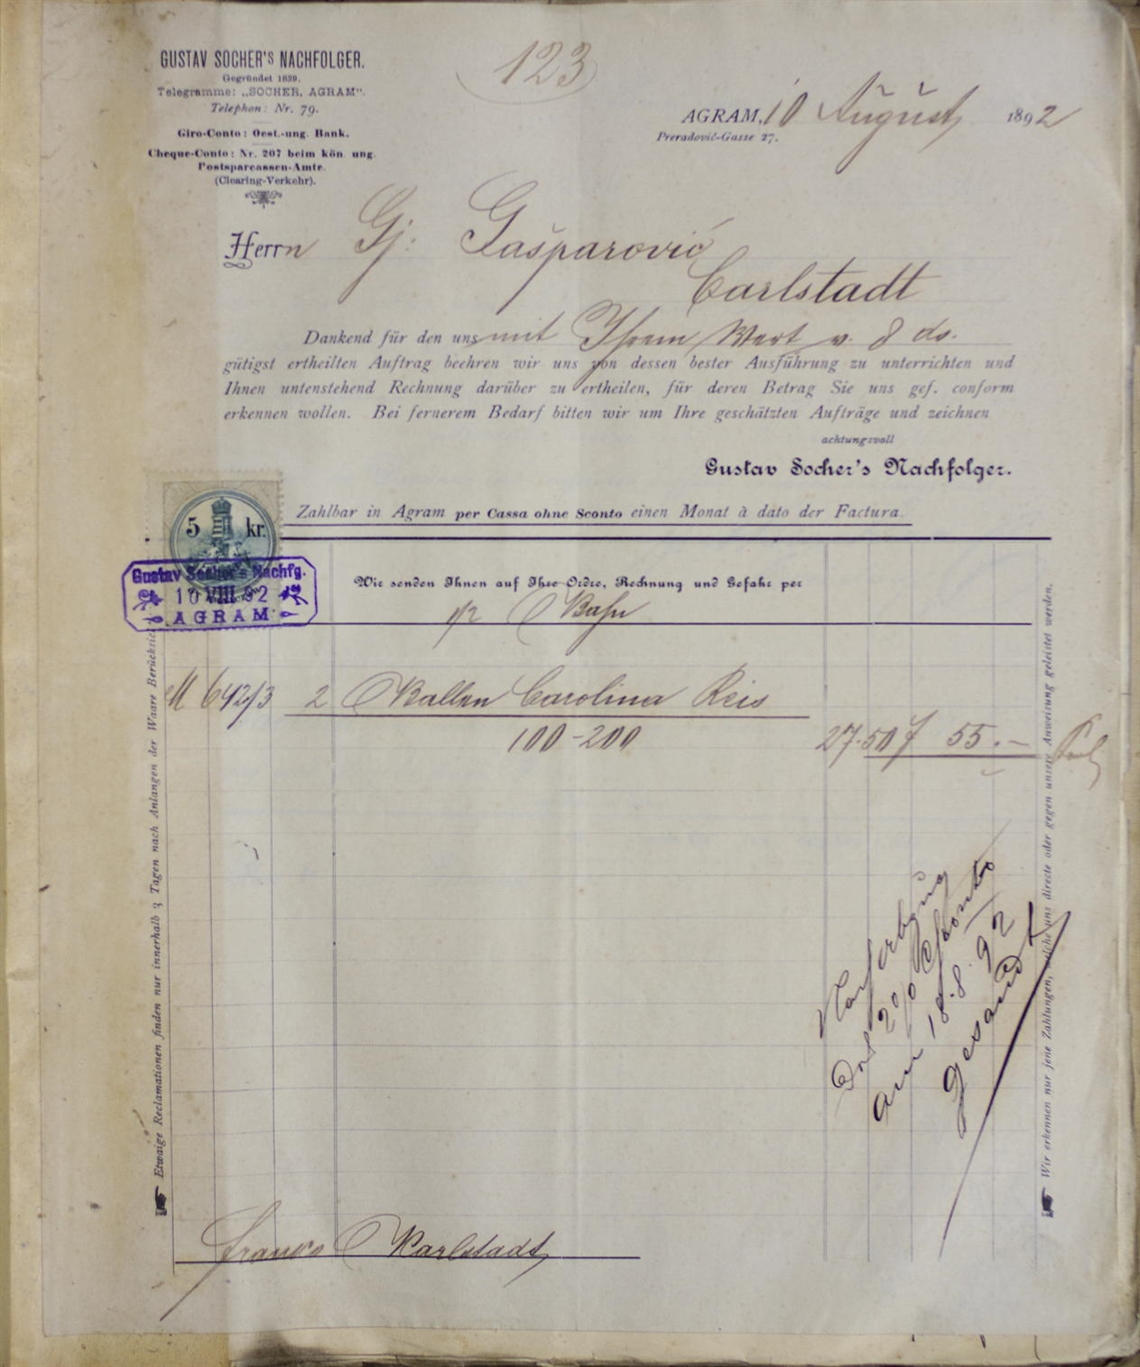 GUSTAV SOCHER'S NACHFOLGER.
Gegründet 1839.
Telegramme: „SOCHER, AGRAM“.
Telephon: Nr. 79.
Giro-Conto: Oest.-ung. Bank.
Cheque-Conto: Nr. 207 beim kön. ung.
Postsparcassen-Amte.
(Clearing-Verkehr).
123
AGRAM, 10 August 1892
Preradović-Gasse 27.
Herrn Gj: Gašparović
Carlstadt
Dankend für den uns mit Ihrem Wert v. 8 ds.
gütigst ertheilten Auftrag beehren wir uns von dessen bester Ausführung zu unterrichten und
Ihnen untenstehend Rechnung darüber zu ertheilen, für deren Betrag Sie uns gef. conform
erkennen wollen. Bei fernerem Bedarf bitten wir um Ihre geschätzten Aufträge und zeichnen
achtungsvoll
Gustav Socher's Nachfolger.
Zahlbar in Agram per Cassa ohne Sconto einen Monat à dato der Factura.
5 kr.
Gustav Socher's Nachfg.
10 VIII 92
AGRAM
Wir senden Ihnen auf Ihre Ordre, Rechnung und Gefahr per
Bahn
M 642/3 2 Ballen Carolina Reis
100-200 27.50 f 55.-
am 18.8.92
gesandt
franco Karlstadt
Etwaige Reclamationen finden nur innerhalb 3 Tagen nach Anlangen der Waare
Wir erkennen nur jene Zahlungen, welche uns directe oder gegen unsere Anweisung geleistet werden.